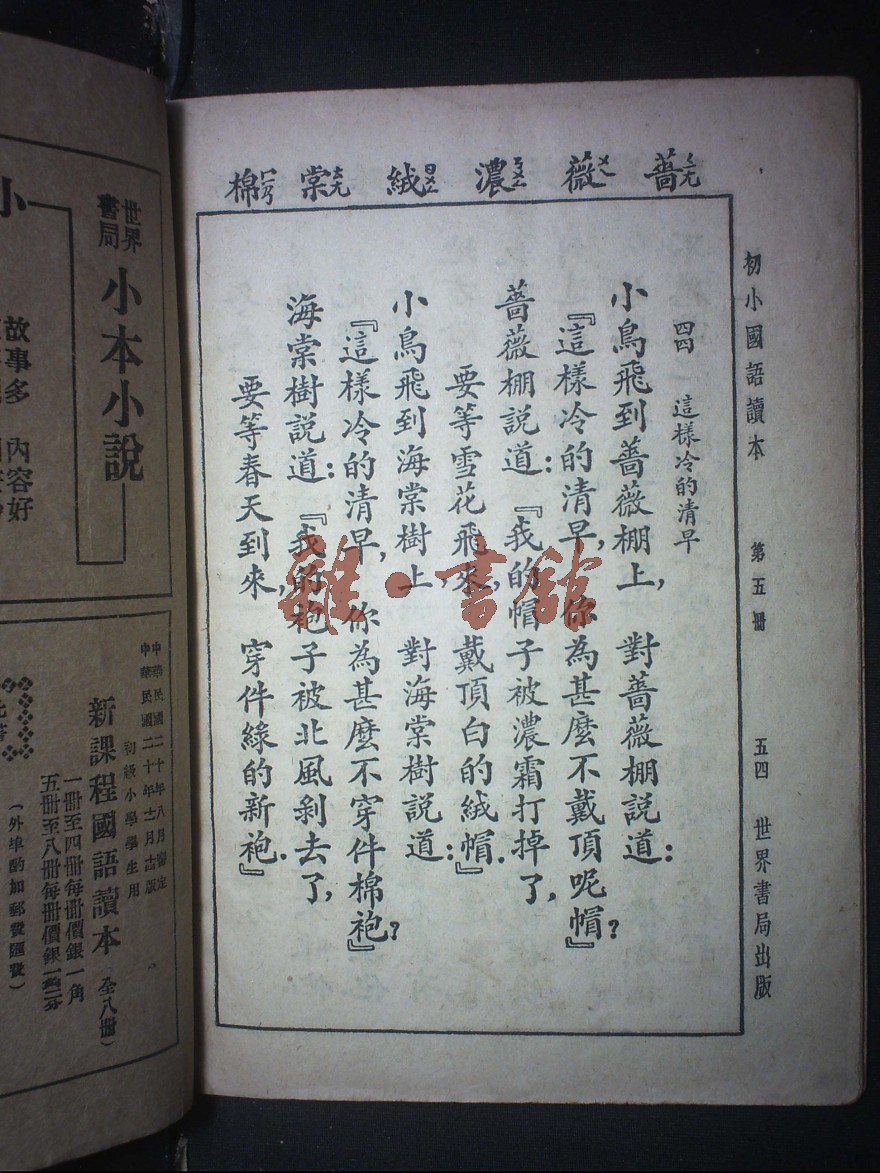 薔ㄑㄤ 薇ㄨㄟ 濃ㄋㄨㄥ 絨ㄖㄨㄥ 棠ㄊㄤ 棉ㄇㄧㄢ
初小國語讀本 第五冊 五四 世界書局出版
四四 這樣冷的清早
小鳥飛到薔薇棚上,對薔薇棚說道:
『這樣冷的清早,你為甚麼不戴頂呢帽?』
薔薇棚說道:『我的帽子被濃霜打掉了,
要等雪花飛來,戴頂白的絨帽.』
小鳥飛到海棠樹上 對海棠樹說道:
『這樣冷的清早,你為甚麼不穿件棉袍?』
海棠樹說道:『我的袍子被北風剥去了,
要等春天到來,穿件綠的新袍.』
雜·書館
小
故事多 內容好
世界書局
小本小說
中華民國二十年八月審定
中華民國二十年十一月十古版
初級小學學生用
新課程國語讀本 全八冊)
一冊至四冊每冊價銀一角
五冊至八冊每冊價銀一角二分
(外埠酌加郵費匯費)